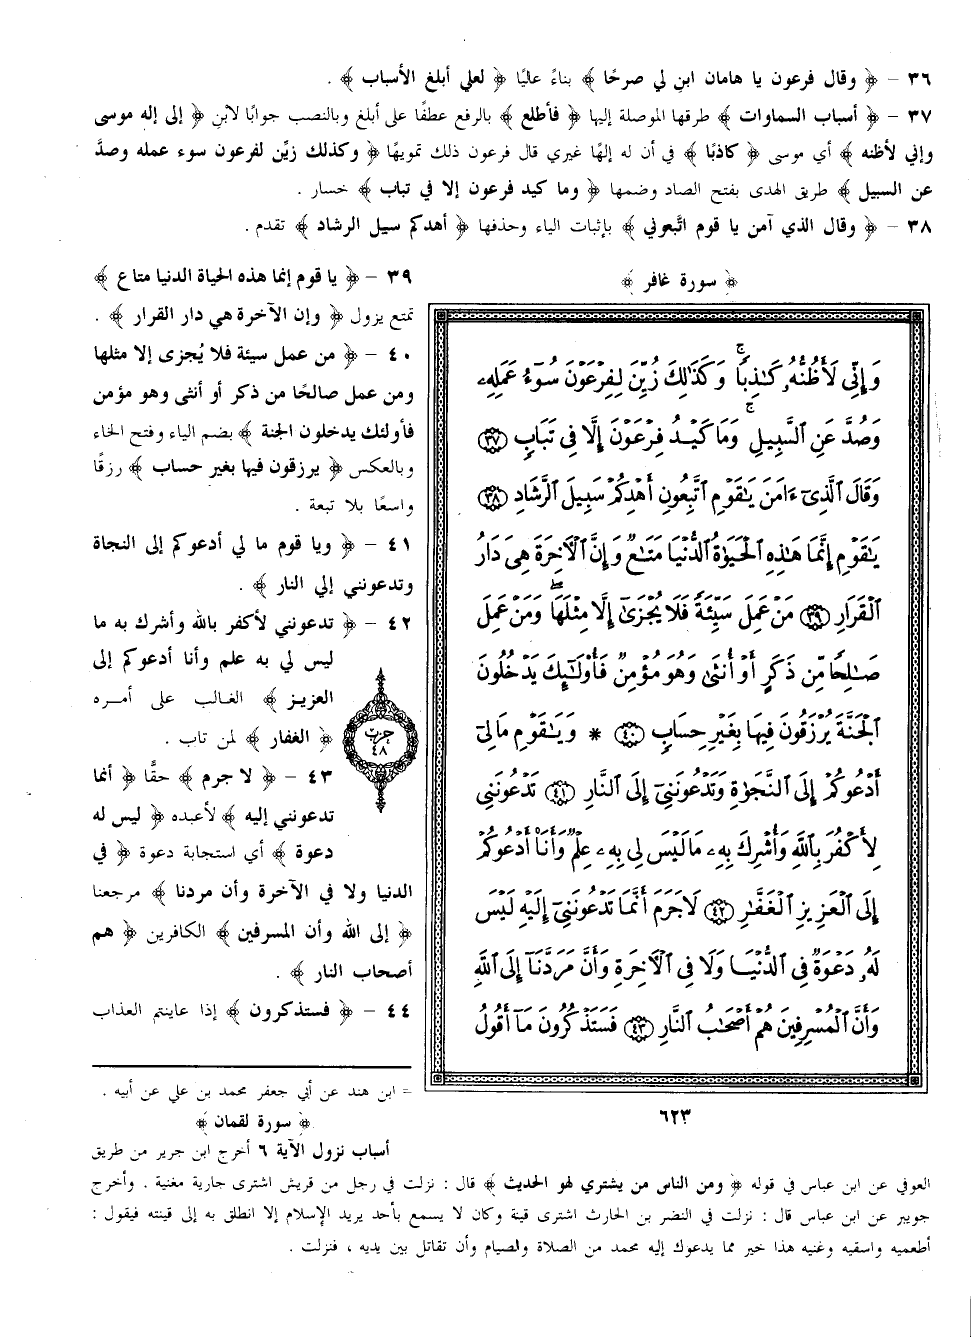 ٣٦ – ﴿ وقال فرعون يا هامان ابن لي صرحًا ﴾ بناءً عاليًا ﴿ لعلي أبلغ الأسباب ﴾ .
٣٧ – ﴿ أسباب السماوات ﴾ طرقها الموصلة إليها ﴿ فأطلع ﴾ بالرفع عطفًا على أبلغ وبالنصب جوابًا لابن ﴿ إلى إله موسى
وإني لأظنه ﴾ أي موسى ﴿ كاذبًا ﴾ في أن له إلهًا غيري قال فرعون ذلك تمويهًا ﴿ وكذلك زيِّن لفرعون سوء عمله وصدَّ
عن السبيل ﴾ طريق الهدى بفتح الصاد وضمها ﴿ وما كيد فرعون إلا في تباب ﴾ خسار .
٣٨ – ﴿ وقال الذي آمن يا قوم اتَّبعوني ﴾ بإثبات الياء وحذفها ﴿ أهدكم سبيل الرشاد ﴾ تقدم .
﴿ سورة غافر ﴾
وَإِنِّي لَأَظُنُّهُۥ كَٰذِبٗاۚ وَكَذَٰلِكَ زُيِّنَ لِفِرۡعَوۡنَ سُوٓءُ عَمَلِهِۦ
وَصُدَّ عَنِ ٱلسَّبِيلِۚ وَمَا كَيۡدُ فِرۡعَوۡنَ إِلَّا فِي تَبَابٖ ٣٧
وَقَالَ ٱلَّذِيٓ ءَامَنَ يَٰقَوۡمِ ٱتَّبِعُونِ أَهۡدِكُمۡ سَبِيلَ ٱلرَّشَادِ ٣٨
يَٰقَوۡمِ إِنَّمَا هَٰذِهِ ٱلۡحَيَوٰةُ ٱلدُّنۡيَا مَتَٰعٞ وَإِنَّ ٱلۡأٓخِرَةَ هِيَ دَارُ
ٱلۡقَرَارِ ٣٩ مَنۡ عَمِلَ سَيِّئَةٗ فَلَا يُجۡزَىٰٓ إِلَّا مِثۡلَهَاۖ وَمَنۡ عَمِلَ
صَٰلِحٗا مِّن ذَكَرٍ أَوۡ أُنثَىٰ وَهُوَ مُؤۡمِنٞ فَأُوْلَٰٓئِكَ يَدۡخُلُونَ
ٱلۡجَنَّةَ يُرۡزَقُونَ فِيهَا بِغَيۡرِ حِسَابٖ ٤٠ * وَيَٰقَوۡمِ مَا لِيٓ
أَدۡعُوكُمۡ إِلَى ٱلنَّجَوٰةِ وَتَدۡعُونَنِيٓ إِلَى ٱلنَّارِ ٤١ تَدۡعُونَنِي
لِأَكۡفُرَ بِٱللَّهِ وَأُشۡرِكَ بِهِۦ مَا لَيۡسَ لِي بِهِۦ عِلۡمٞ وَأَنَا۠ أَدۡعُوكُمۡ
إِلَى ٱلۡعَزِيزِ ٱلۡغَفَّٰرِ ٤٢ لَا جَرَمَ أَنَّمَا تَدۡعُونَنِيٓ إِلَيۡهِ لَيۡسَ
لَهُۥ دَعۡوَةٞ فِي ٱلدُّنۡيَا وَلَا فِي ٱلۡأٓخِرَةِ وَأَنَّ مَرَدَّنَآ إِلَى ٱللَّهِ
وَأَنَّ ٱلۡمُسۡرِفِينَ هُمۡ أَصۡحَٰبُ ٱلنَّارِ ٤٣ فَسَتَذۡكُرُونَ مَآ أَقُولُ
٦٢٣
٣٩ – ﴿ يا قوم إنما هذه الحياة الدنيا متاع ﴾
تمتع يزول ﴿ وإن الآخرة هي دار القرار ﴾ .
٤٠ – ﴿ من عمل سيئة فلا يُجزى إلا مثلها
ومن عمل صالحًا من ذكر أو أنثى وهو مؤمن
فأولئك يدخلون الجنة ﴾ بضم الياء وفتح الخاء
وبالعكس ﴿ يرزقون فيها بغير حساب ﴾ رزقًا
واسعًا بلا تبعة .
٤١ – ﴿ ويا قوم ما لي أدعوكم إلى النجاة
وتدعونني إلى النار ﴾ .
٤٢ – ﴿ تدعونني لأكفر بالله وأشرك به ما
ليس لي به علم وأنا أدعوكم إلى
العزيز ﴾ الغالب على أمره
﴿ الغفار ﴾ لمن تاب .
حزب
٤٨
٤٣ – ﴿ لا جرم ﴾ حقًّا ﴿ أنما
تدعونني إليه ﴾ لأعبده ﴿ ليس له
دعوة ﴾ أي استجابة دعوة ﴿ في
الدنيا ولا في الآخرة وأن مردنا ﴾ مرجعنا
﴿ إلى الله وأن المسرفين ﴾ الكافرين ﴿ هم
أصحاب النار ﴾ .
٤٤ – ﴿ فستذكرون ﴾ إذا عاينتم العذاب
= ابن هند عن أبي جعفر محمد بن علي عن أبيه .
﴿ سورة لقمان ﴾
أسباب نزول الآية ٦ أخرج ابن جرير من طريق
العوفي عن ابن عباس في قوله ﴿ ومن الناس من يشتري لهو الحديث ﴾ قال : نزلت في رجل من قريش اشترى جارية مغنية . وأخرج
جويبر عن ابن عباس قال : نزلت في النضر بن الحارث اشترى قينة وكان لا يسمع بأحد يريد الإسلام إلا انطلق به إلى قينته فيقول :
أطعميه واسقيه وغنيه هذا خير مما يدعوك إليه محمد من الصلاة والصيام وأن تقاتل بين يديه ، فنزلت .